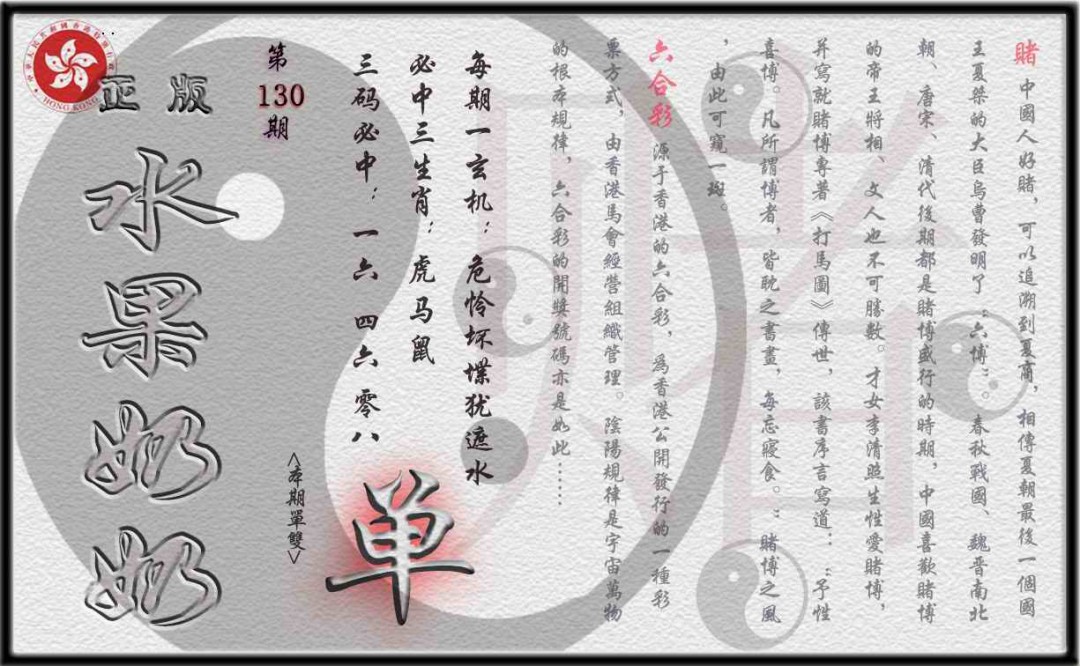 賭 中國人好賭，可以追溯到夏商，相傳夏朝最後一個國
王夏桀的大臣烏曹發明了“六博”。春秋戰國、魏晉南北
朝、唐宋、清代後期都是賭博盛行的時期，中國喜歡賭博
的帝王將相、文人也不可勝數。才女李清照生性愛賭博，
并寫就賭博專著《打馬圖》傳世，該書序言寫道：“予性
喜博。凡所謂博者，皆耽之晝畫，每忘寢食。”賭博之風
，由此可窺一斑。
六合彩 源于香港的六合彩，為香港公開發行的一種彩
票方式，由香港馬會經營組織管理。陰陽規律是宇宙萬物
的根本規律，六合彩的開獎號碼亦是如此……
每期一玄机：危怜坏堞犹遮水
必中三生肖：虎马鼠
三码必中：一六 四六 零八
单
<本期單雙>
第
130
期
正版
水果奶奶
HONG KONG